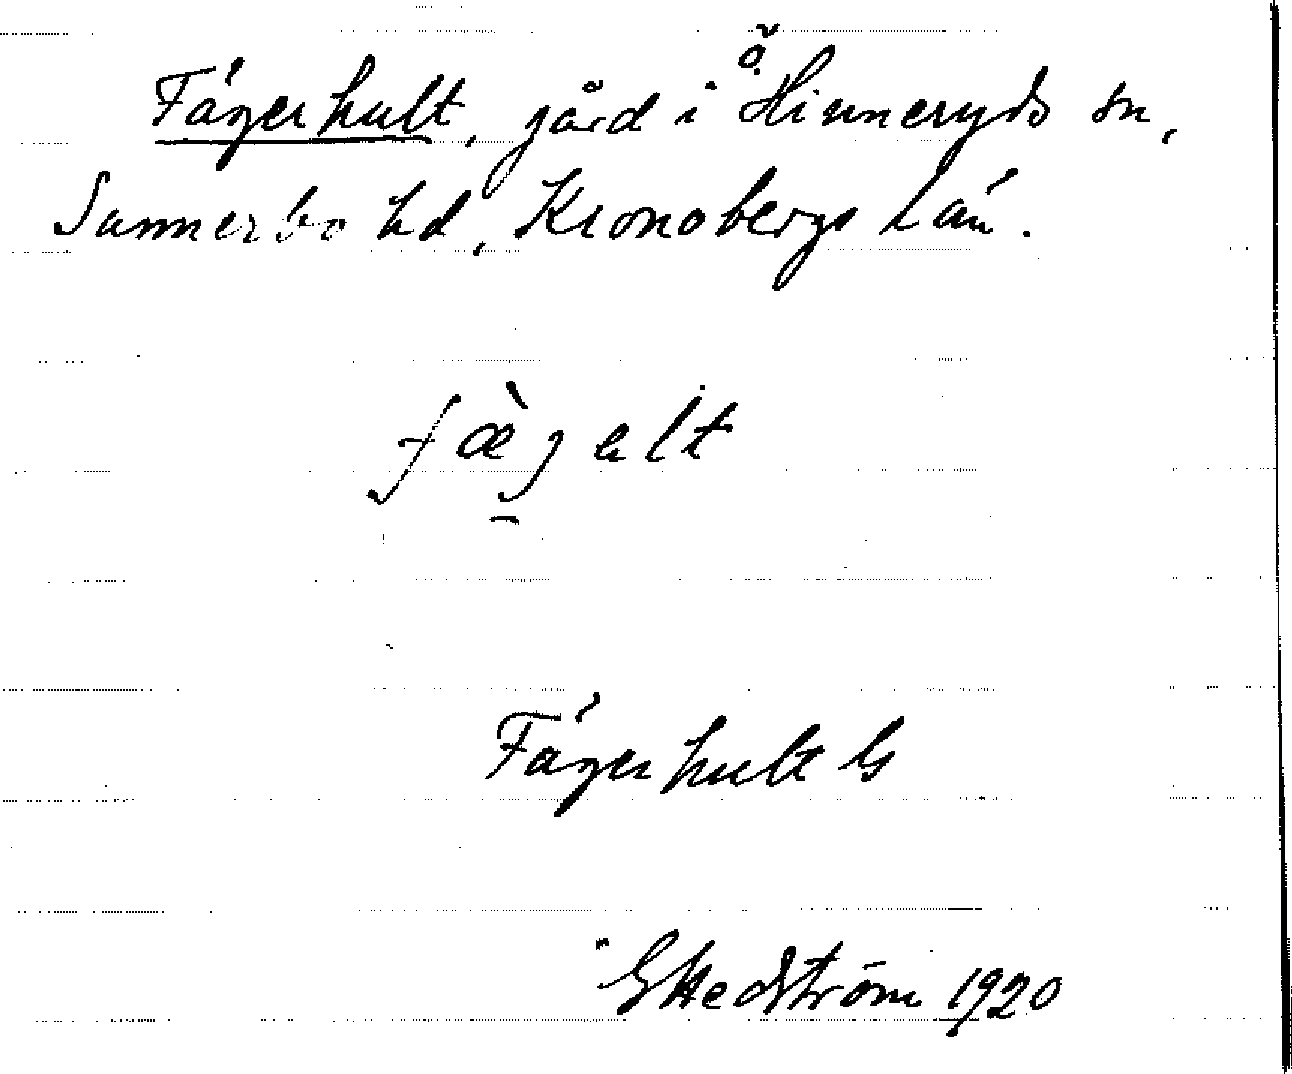 ö.
Fägerhult, gård i Hinneryds sn,
Sunnerbo hd, Kronobergs län.
fæ̀galt
Fägerhult G
G Hedström 1920